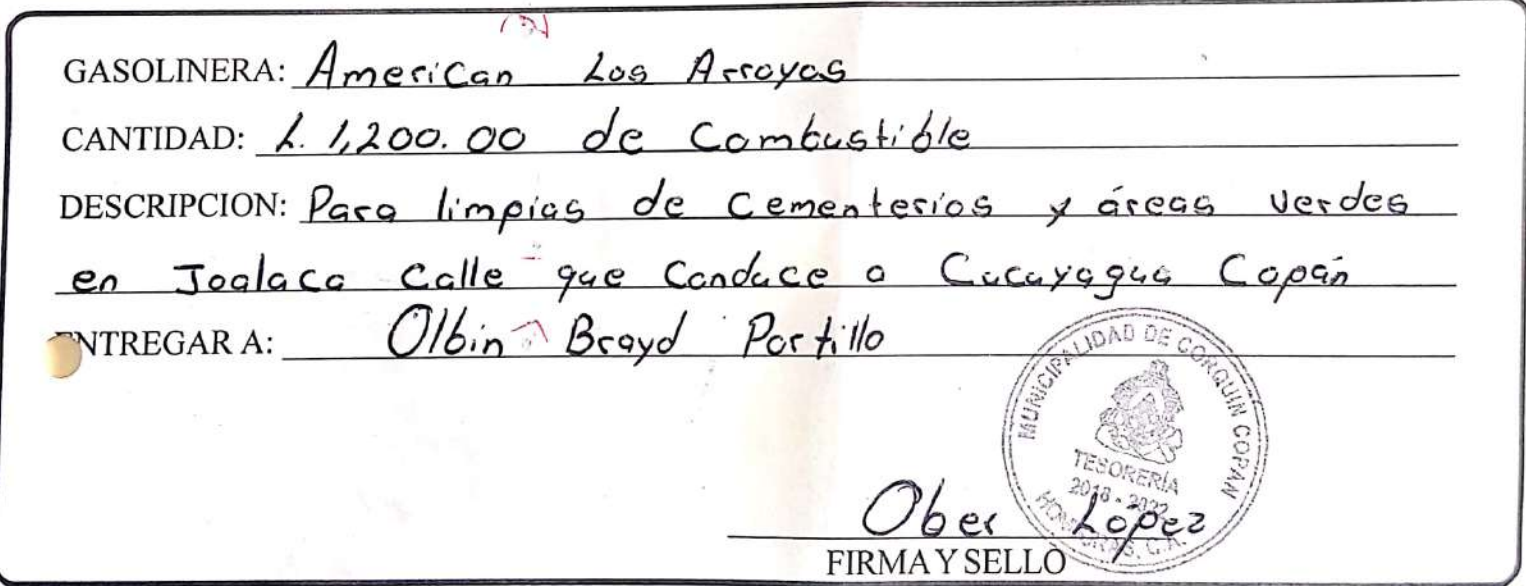 GASOLINERA: American Los Arroyos
CANTIDAD: L. 1,200.00 de Combustible
DESCRIPCION: Para limpias de Cementerios y áreas verdes
en Joalaca Calle que Conduce a Cucuyagua Copán
ENTREGAR A: Olbin Brayd Portillo
MUNICIPALIDAD DE CORQUIN COPAN
TESORERÍA
2018 - 2022
HONDURAS, C.A.
Ober Lopez
FIRMA Y SELLO